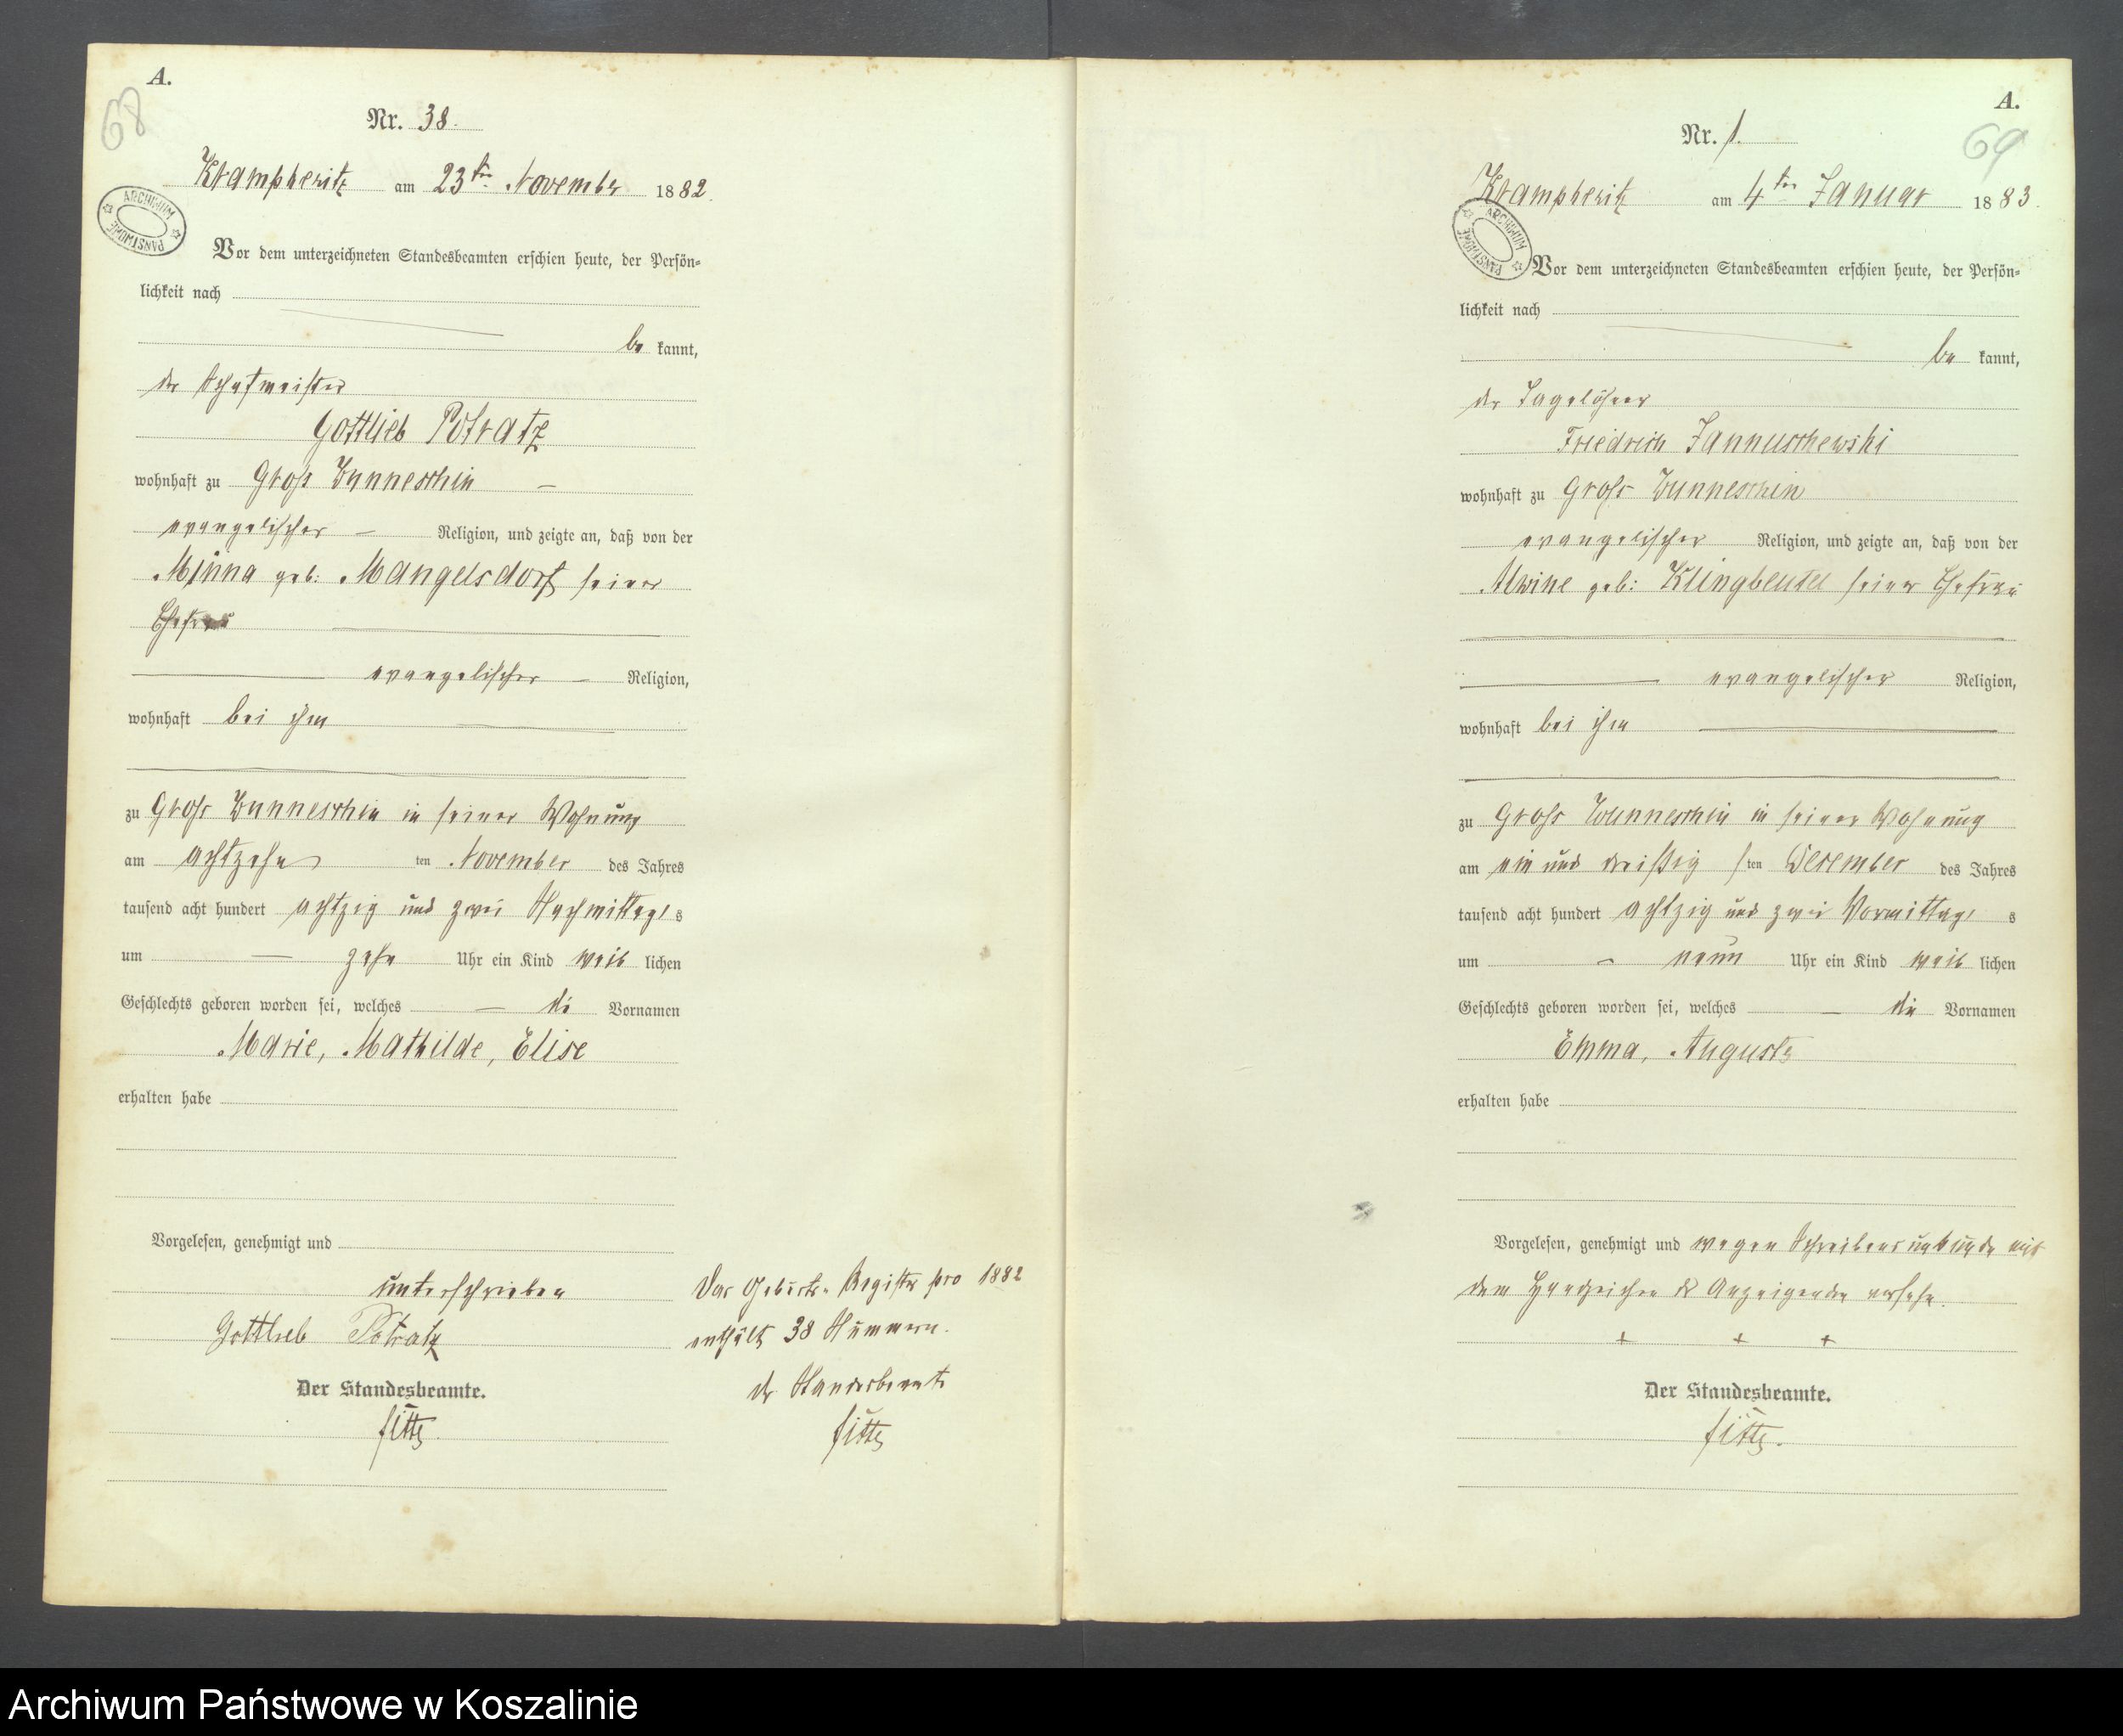 A.
68
Nr. 38.
Krampkewitz am 23ten November 1882.
ARCHIWUM PAŃSTWOWE
Vor dem unterzeichneten Standesbeamten erschien heute, der Persön-
lichkeit nach
be kannt,
der Schafmeister
Gottlieb Potratz
wohnhaft zu Groß Wunneschin
evangelischer Religion, und zeigte an, daß von der
Minna geb: Mangelsdorf seiner
Ehefrau
evangelischer Religion,
wohnhaft bei ihm
zu Groß Wunneschin in seiner Wohnung
am achtzehn ten November des Jahres
tausend acht hundert achtzig und zwei Nachmittags
um zehn Uhr ein Kind weib lichen
Geschlechts geboren worden sei, welches die Vornamen
Marie, Mathilde, Elise
erhalten habe
Vorgelesen, genehmigt und
unterschrieben
Gottlieb Potratz
Der Standesbeamte.
Das Geburts-Register pro 1882
enthält 38 Nummern.
der Standesbeamte
A.
69
Nr. 1.
Krampkewitz am 4ten Januar 1883.
ARCHIWUM PAŃSTWOWE
Vor dem unterzeichneten Standesbeamten erschien heute, der Persön-
lichkeit nach
be kannt,
der Tagelöhner
Friedrich Jannuschewski
wohnhaft zu Groß Wunneschin
evangelischer Religion, und zeigte an, daß von der
Alwine geb: Klingbeutel seiner Ehefrau
evangelischer Religion,
wohnhaft bei ihm
zu Groß Wunneschin in seiner Wohnung
am ein und dreißig sten December des Jahres
tausend acht hundert achtzig und zwei Vormittags
um neun Uhr ein Kind weib lichen
Geschlechts geboren worden sei, welches die Vornamen
Emma, Auguste
erhalten habe
Vorgelesen, genehmigt und wegen Schreibensunkunde mit
dem Handzeichen des Anzeigenden versehn.
+ + +
Der Standesbeamte.
Archiwum Państwowe w Koszalinie